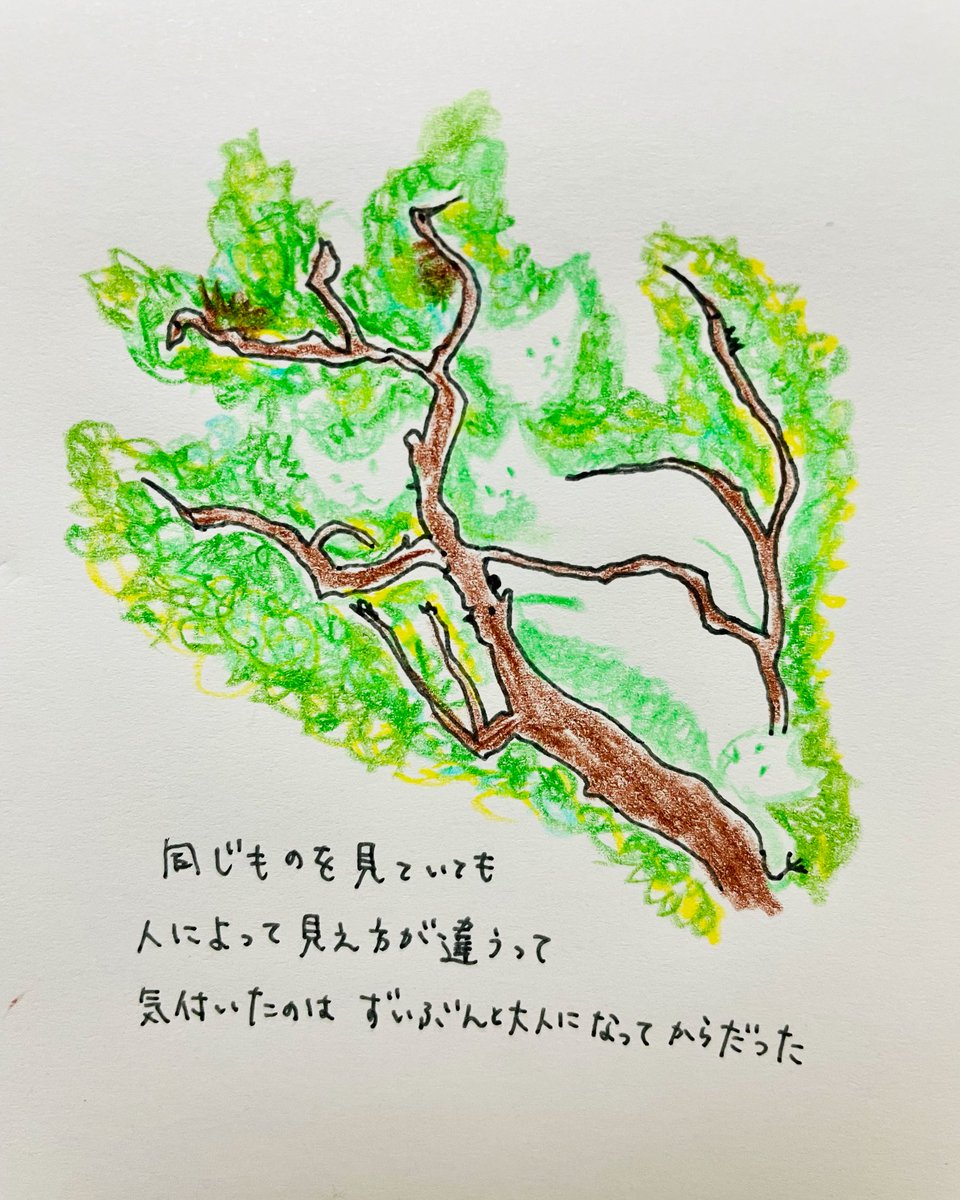 同じものを見ていても
人によって見え方が違うって
気付いたのは ずいぶんと大人になってからだった